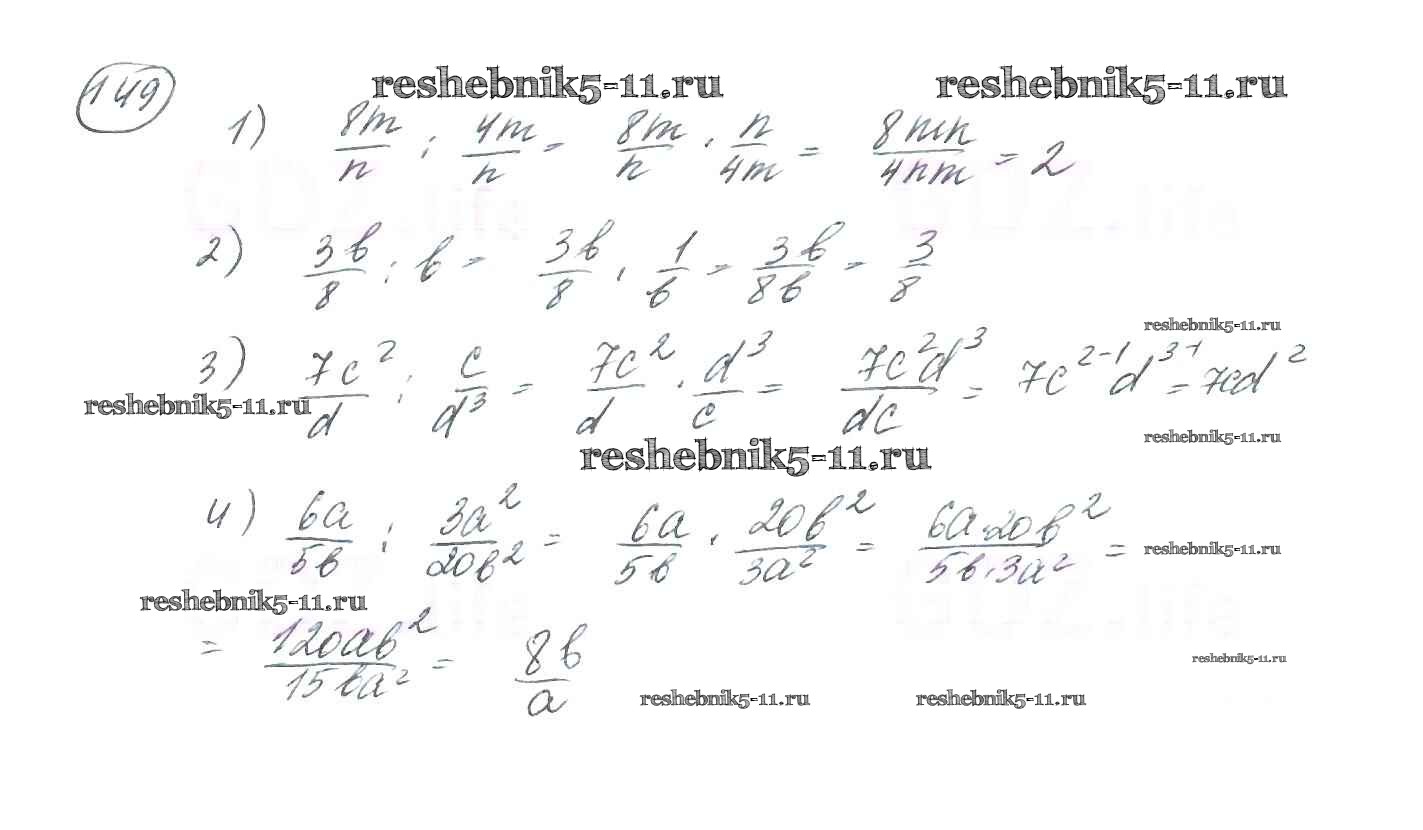 149
reshebnik5-11.ru reshebnik5-11.ru
1) 8m/n : 4m/n = 8m/n · n/4m = 8mn/4nm = 2
2) 3b/8 : b = 3b/8 · 1/b = 3b/8b = 3/8
reshebnik5-11.ru
3) 7c²/d : c/d³ = 7c²/d · d³/c = 7c²d³/dc = 7c²⁻¹d³⁻¹ = 7cd²
reshebnik5-11.ru
reshebnik5-11.ru
reshebnik5-11.ru
4) 6a/5b : 3a²/20b² = 6a/5b · 20b²/3a² = 6a·20b²/5b·3a² =
reshebnik5-11.ru
reshebnik5-11.ru
= 120ab²/15ba² = 8b/a
reshebnik5-11.ru
reshebnik5-11.ru reshebnik5-11.ru